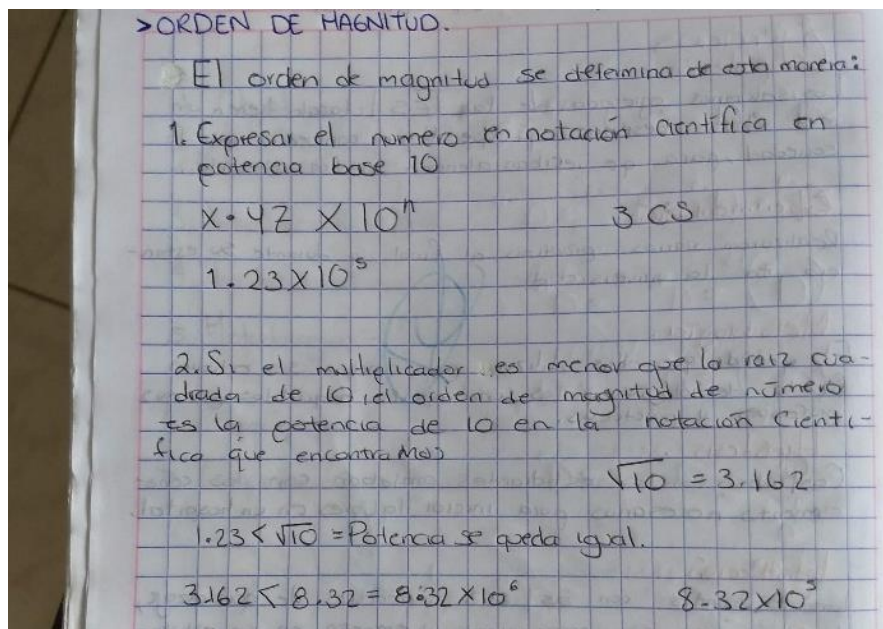 >ORDEN DE MAGNITUD.
El orden de magnitud se determina de esta manera:
1. Expresar el numero en notación científica en
potencia base 10
X.YZ X 10ⁿ 3 CS
1.23X10⁵
2. Si el multiplicador es menor que la raiz cua-
drada de 10, el orden de magnitud de número
es la potencia de 10 en la notación cientí-
fica que encontramos
√10 = 3.162
1.23 < √10 = Potencia se queda igual.
3.162 < 8.32 = 8.32 X10⁶ 8.32X10⁵